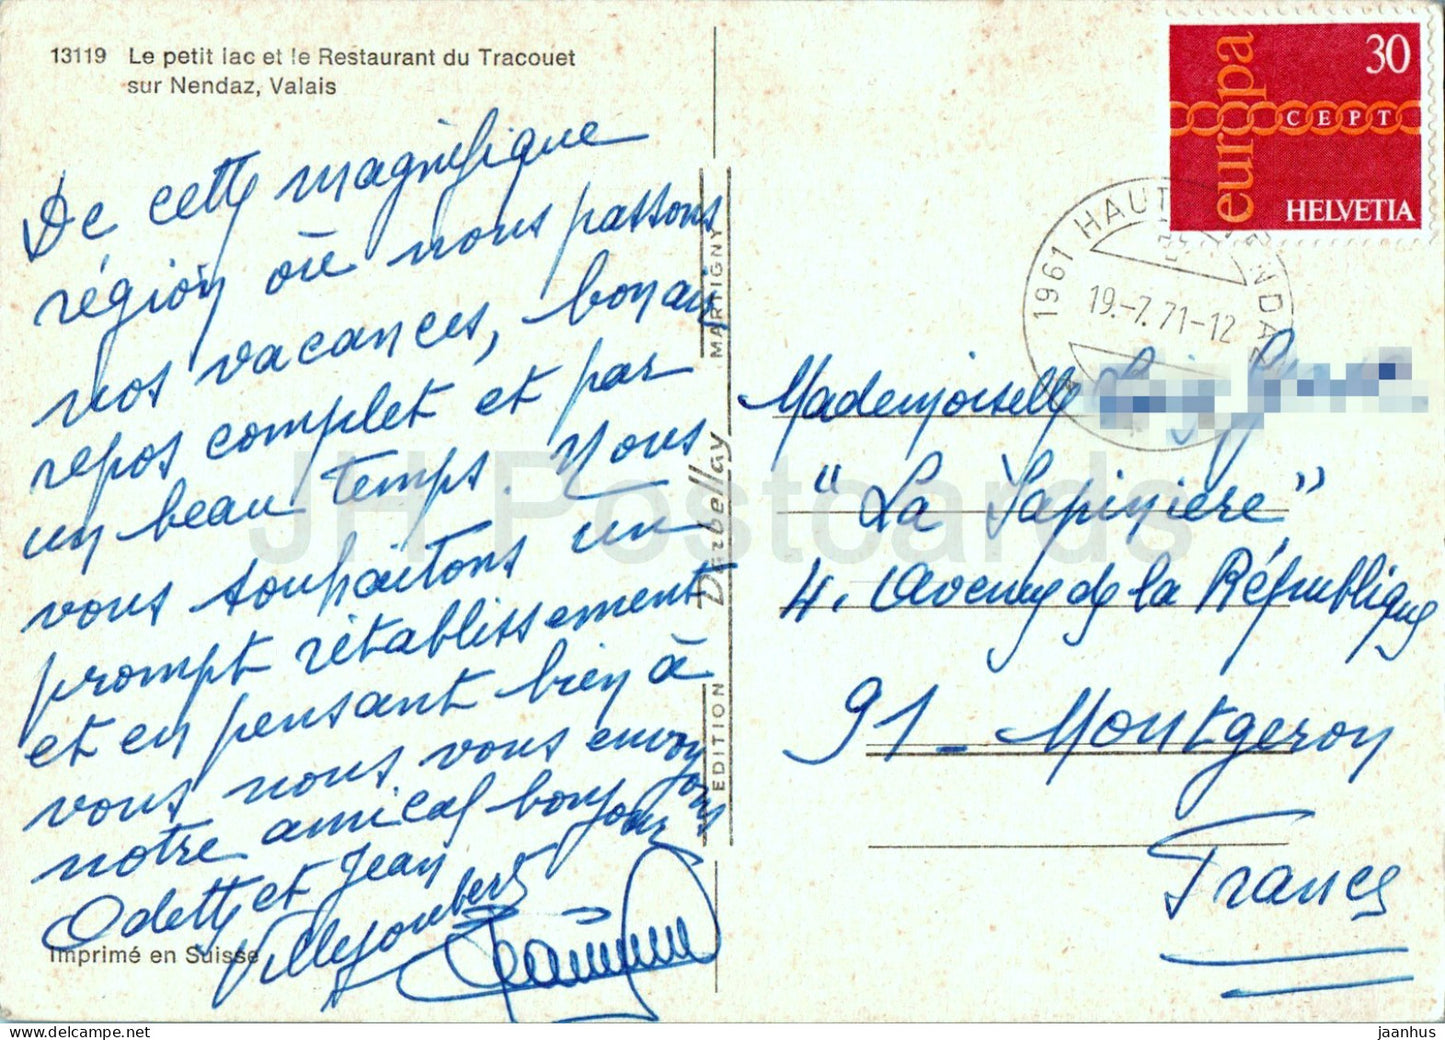 13119 Le petit lac et le Restaurant du Tracouet
sur Nendaz, Valais
De cette magnifique
région où nous passons
nos vacances, bon air,
repos complet et par
un beau temps. Nous
vous souhaitons un
prompt rétablissement
et en pensant bien à
vous nous vous envoyons
notre amical bonjour
Odette et Jean
Villejoubert
Imprimé en Suisse
EDITION Darbellay MARTIGNY
30
europa
CEPT
HELVETIA
1961 HAUTE NENDAZ
19.-7.71-12
Mademoiselle
"La Sapinière"
4. Avenue de la République
91 - Montgeron
France
JH Postcards
www.delcampe.net
jaanhus